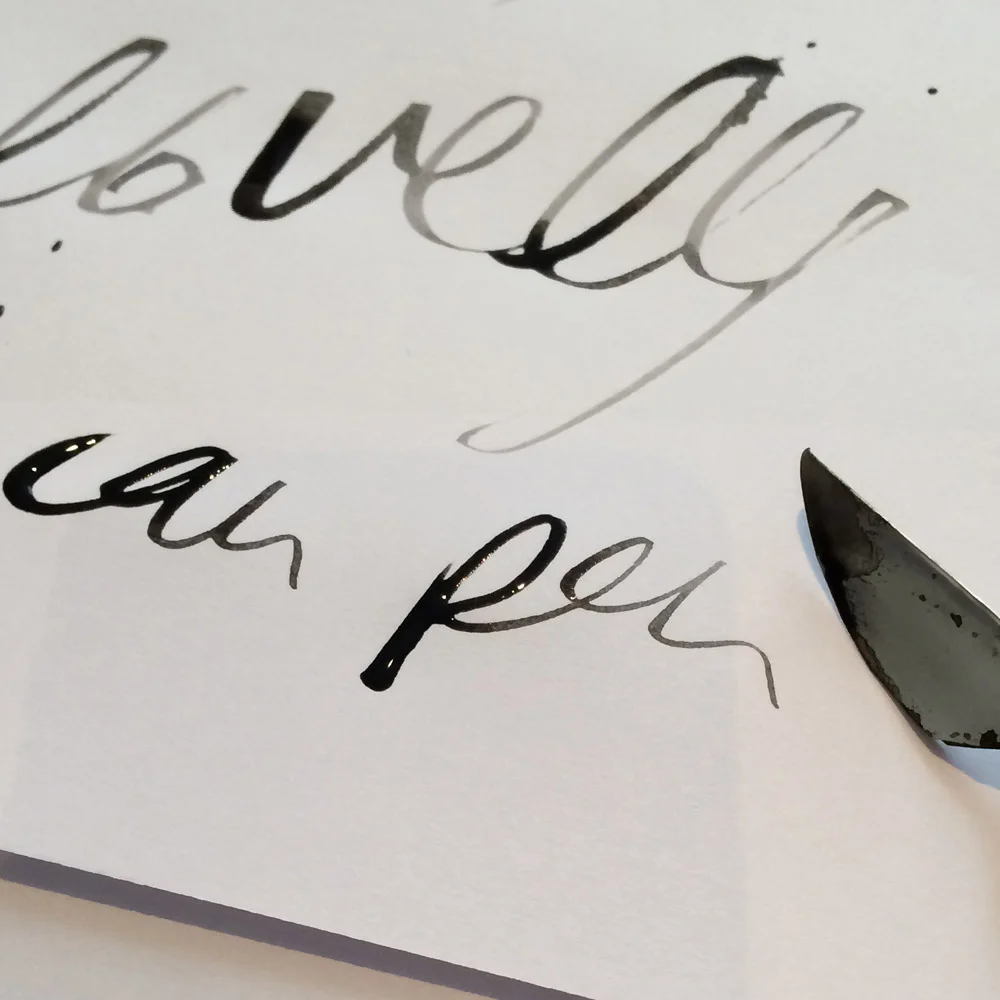 lovelly
can pen